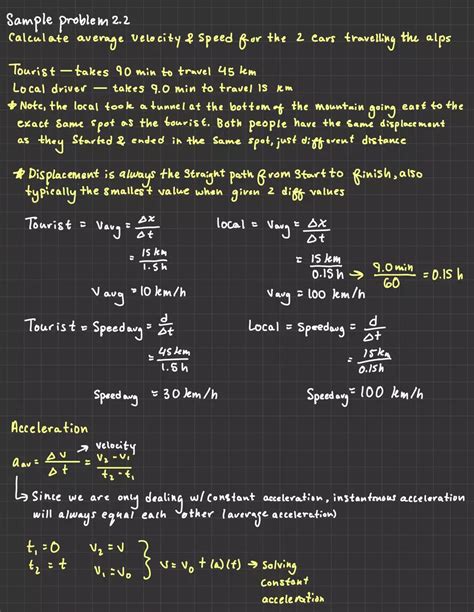 Sample problem 2.2
Calculate average velocity & Speed for the 2 cars travelling the alps
Tourist — takes 90 min to travel 45 km
Local driver — takes 9.0 min to travel 15 km
* Note, the local took a tunnel at the bottom of the mountain going east to the
exact same spot as the tourist. Both people have the same displacement
as they Started & ended in the same spot, just different distance
* Displacement is always the straight path from start to finish, also
typically the smallest value when given 2 diff values
Tourist = Vavg = Δx/Δt
= 15 km/1.5h
Vavg = 10 km/h
local = Vavg = Δx/Δt
= 15 km/0.15 h → 9.0 min/60 = 0.15 h
Vavg = 100 km/h
Tourist = Speedavg = d/Δt
= 45 km/1.5h
Speedavg = 30 km/h
Local = Speedavg = d/Δt
= 15 km/0.15h
Speedavg = 100 km/h
Acceleration
→ velocity
aav = Δv/Δt = v2 - v1/t2 - t1
↳ Since we are only dealing w/ constant acceleration, instantnous acceleration
will always equal each other (average acceleration)
t1 = 0 v2 = v
t2 = t v1 = v0 } v = v0 + (a)(t) → Solving
constant
acceleration